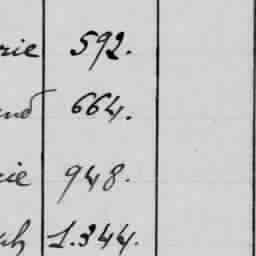 rie 592.
and 664.
rie 948.
ph 1.344.